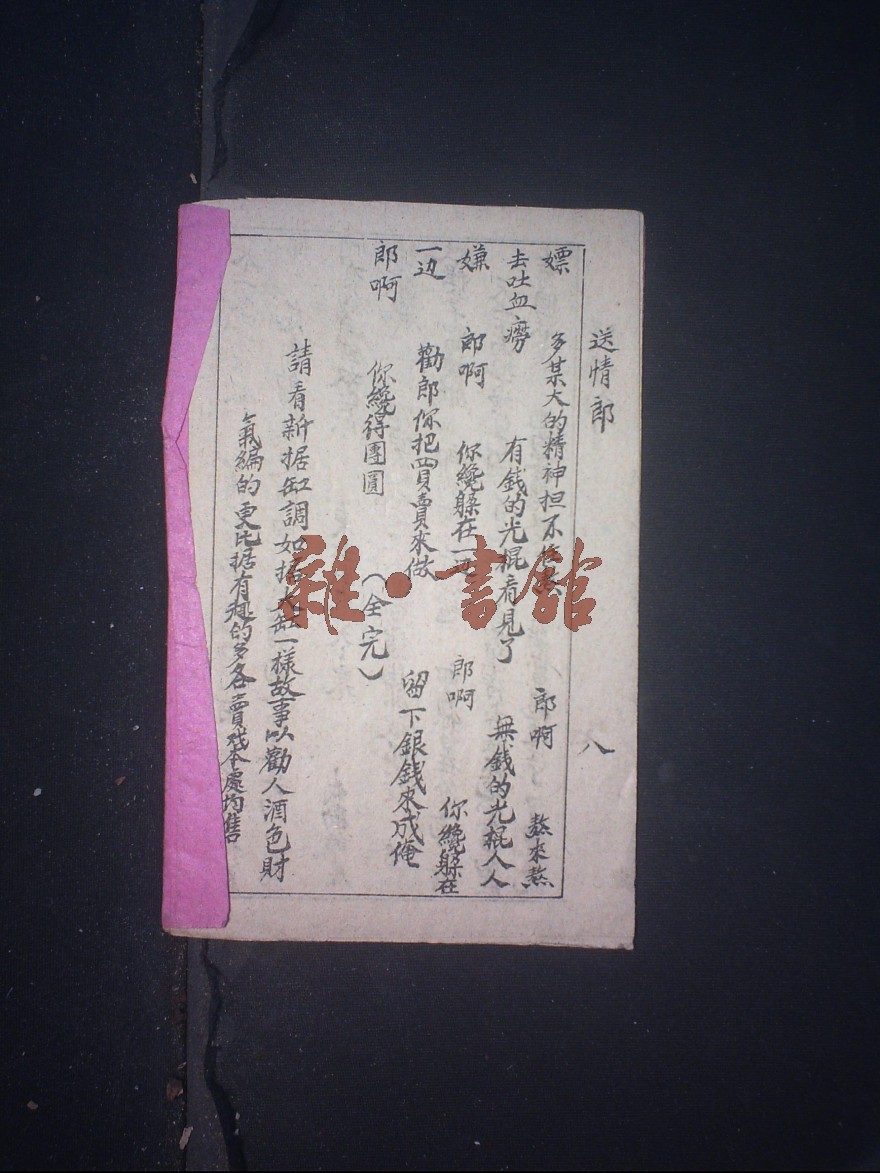 送情郎
八
嫖 多某大的精神担不 郎啊 熬來熬
去吐血痨 有錢的光棍看見了 無錢的光棍人人
嫌 郎啊 你纔躲在一 郎啊 你纔躲在
一边 勸郎你把買賣來做 留下銀錢來成俺
郎啊 你纔得團圓 (全完)
請看新据缸調如 大缸一樣故事以勸人酒色財
氣編的更比据有趣的多各賣戏本處均售
雜·書館